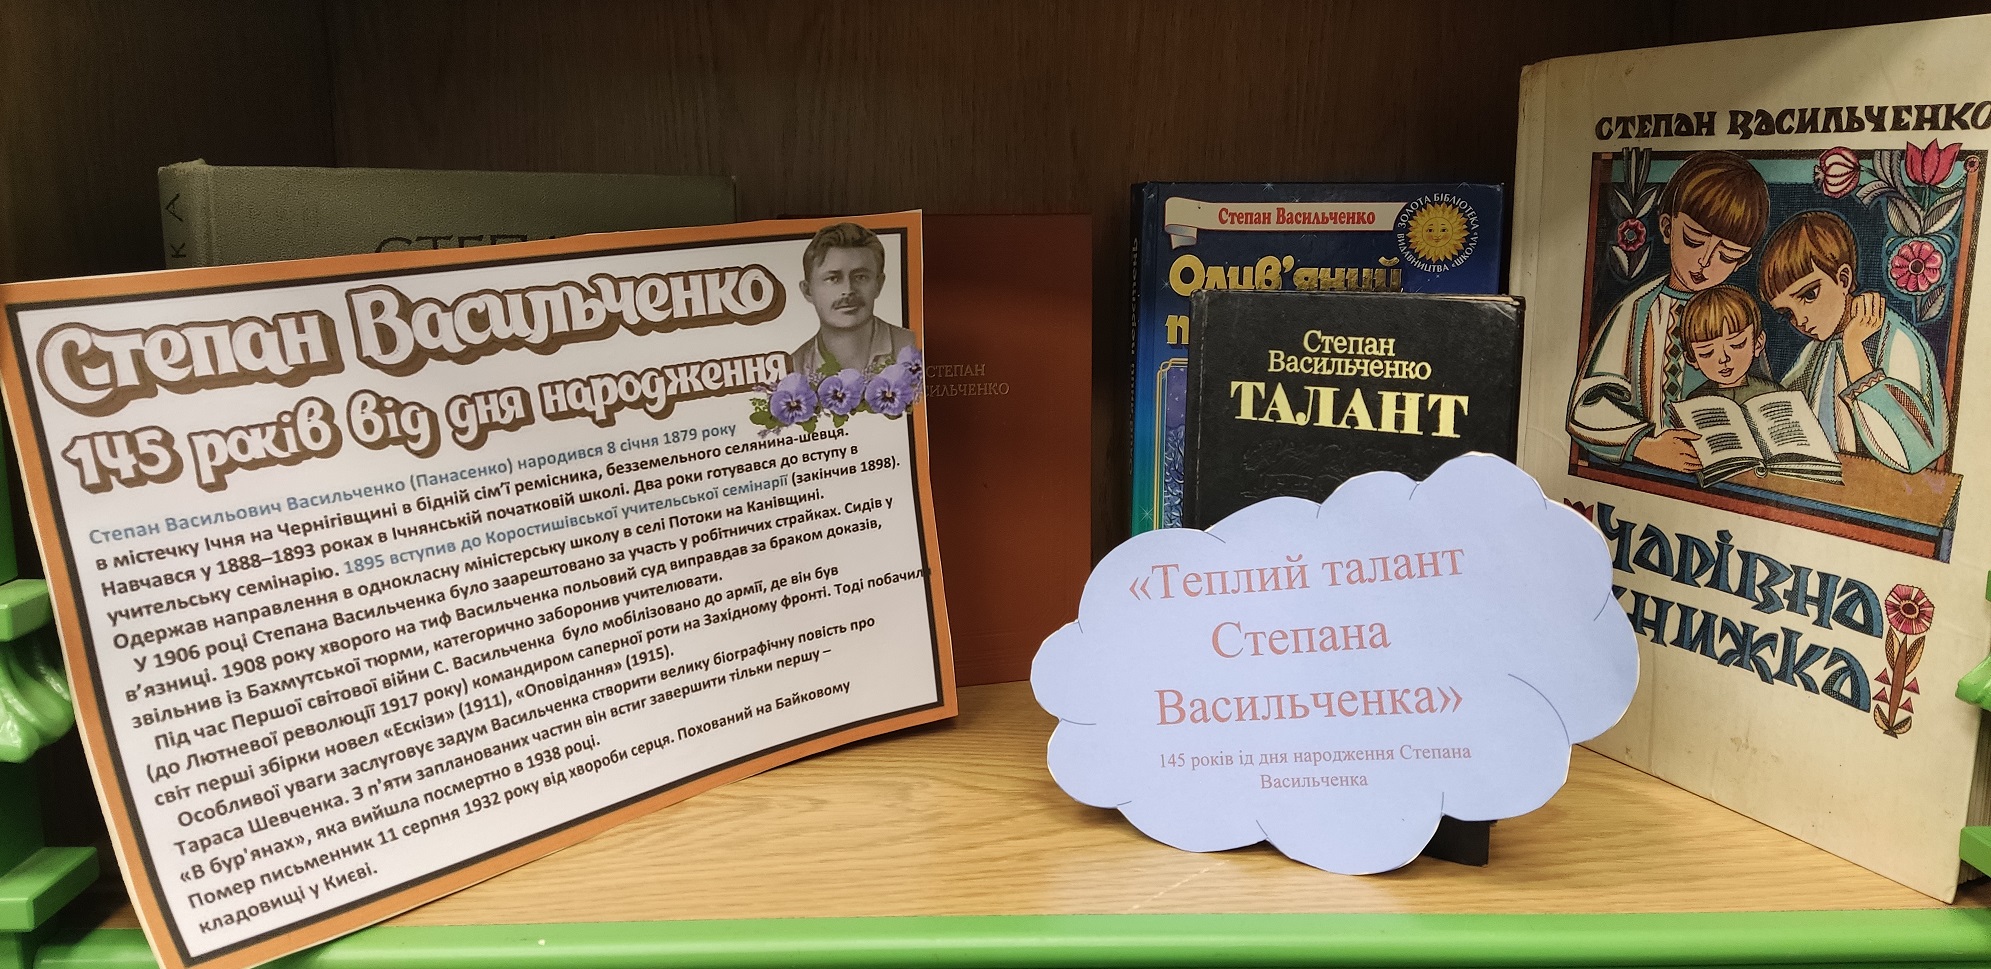 Степан Васильченко
145 років від дня народження
Степан Васильович Васильченко (Панасенко) народився 8 січня 1879 року
в містечку Ічня на Чернігівщині в бідній сім'ї ремісника, безземельного селянина-шевця.
Навчався у 1888–1893 роках в Ічнянській початковій школі. Два роки готувався до вступу в
учительську семінарію. 1895 вступив до Коростишівської учительської семінарії (закінчив 1898).
Одержав направлення в однокласну міністерську школу в селі Потоки на Канівщині.
У 1906 році Степана Васильченка було заарештовано за участь у робітничих страйках. Сидів у
в'язниці. 1908 року хворого на тиф Васильченка польовий суд виправдав за браком доказів,
звільнив із Бахмутської тюрми, категорично заборонив учителювати.
Під час Першої світової війни С. Васильченка було мобілізовано до армії, де він був
(до Лютневої революції 1917 року) командиром саперної роти на Західному фронті. Тоді побачили
світ перші збірки новел «Ескізи» (1911), «Оповідання» (1915).
Особливої уваги заслуговує задум Васильченка створити велику біографічну повість про
Тараса Шевченка. З п'яти запланованих частин він встиг завершити тільки першу –
«В бур'янах», яка вийшла посмертно в 1938 році.
Помер письменник 11 серпня 1932 року від хвороби серця. Похований на Байковому
кладовищі у Києві.
СТЕПАН
ВАСИЛЬЧЕНКО
Степан Васильченко
ЗОЛОТА БІБЛІОТЕКА
ВИДАВНИЦТВА «ШКОЛА»
Олив'яний
Степан
Васильченко
ТАЛАНТ
«Теплий талант
Степана
Васильченка»
145 років ід дня народження Степана
Васильченка
СТЕПАН ВАСИЛЬЧЕНКО
ЧАРІВНА
КНИЖКА